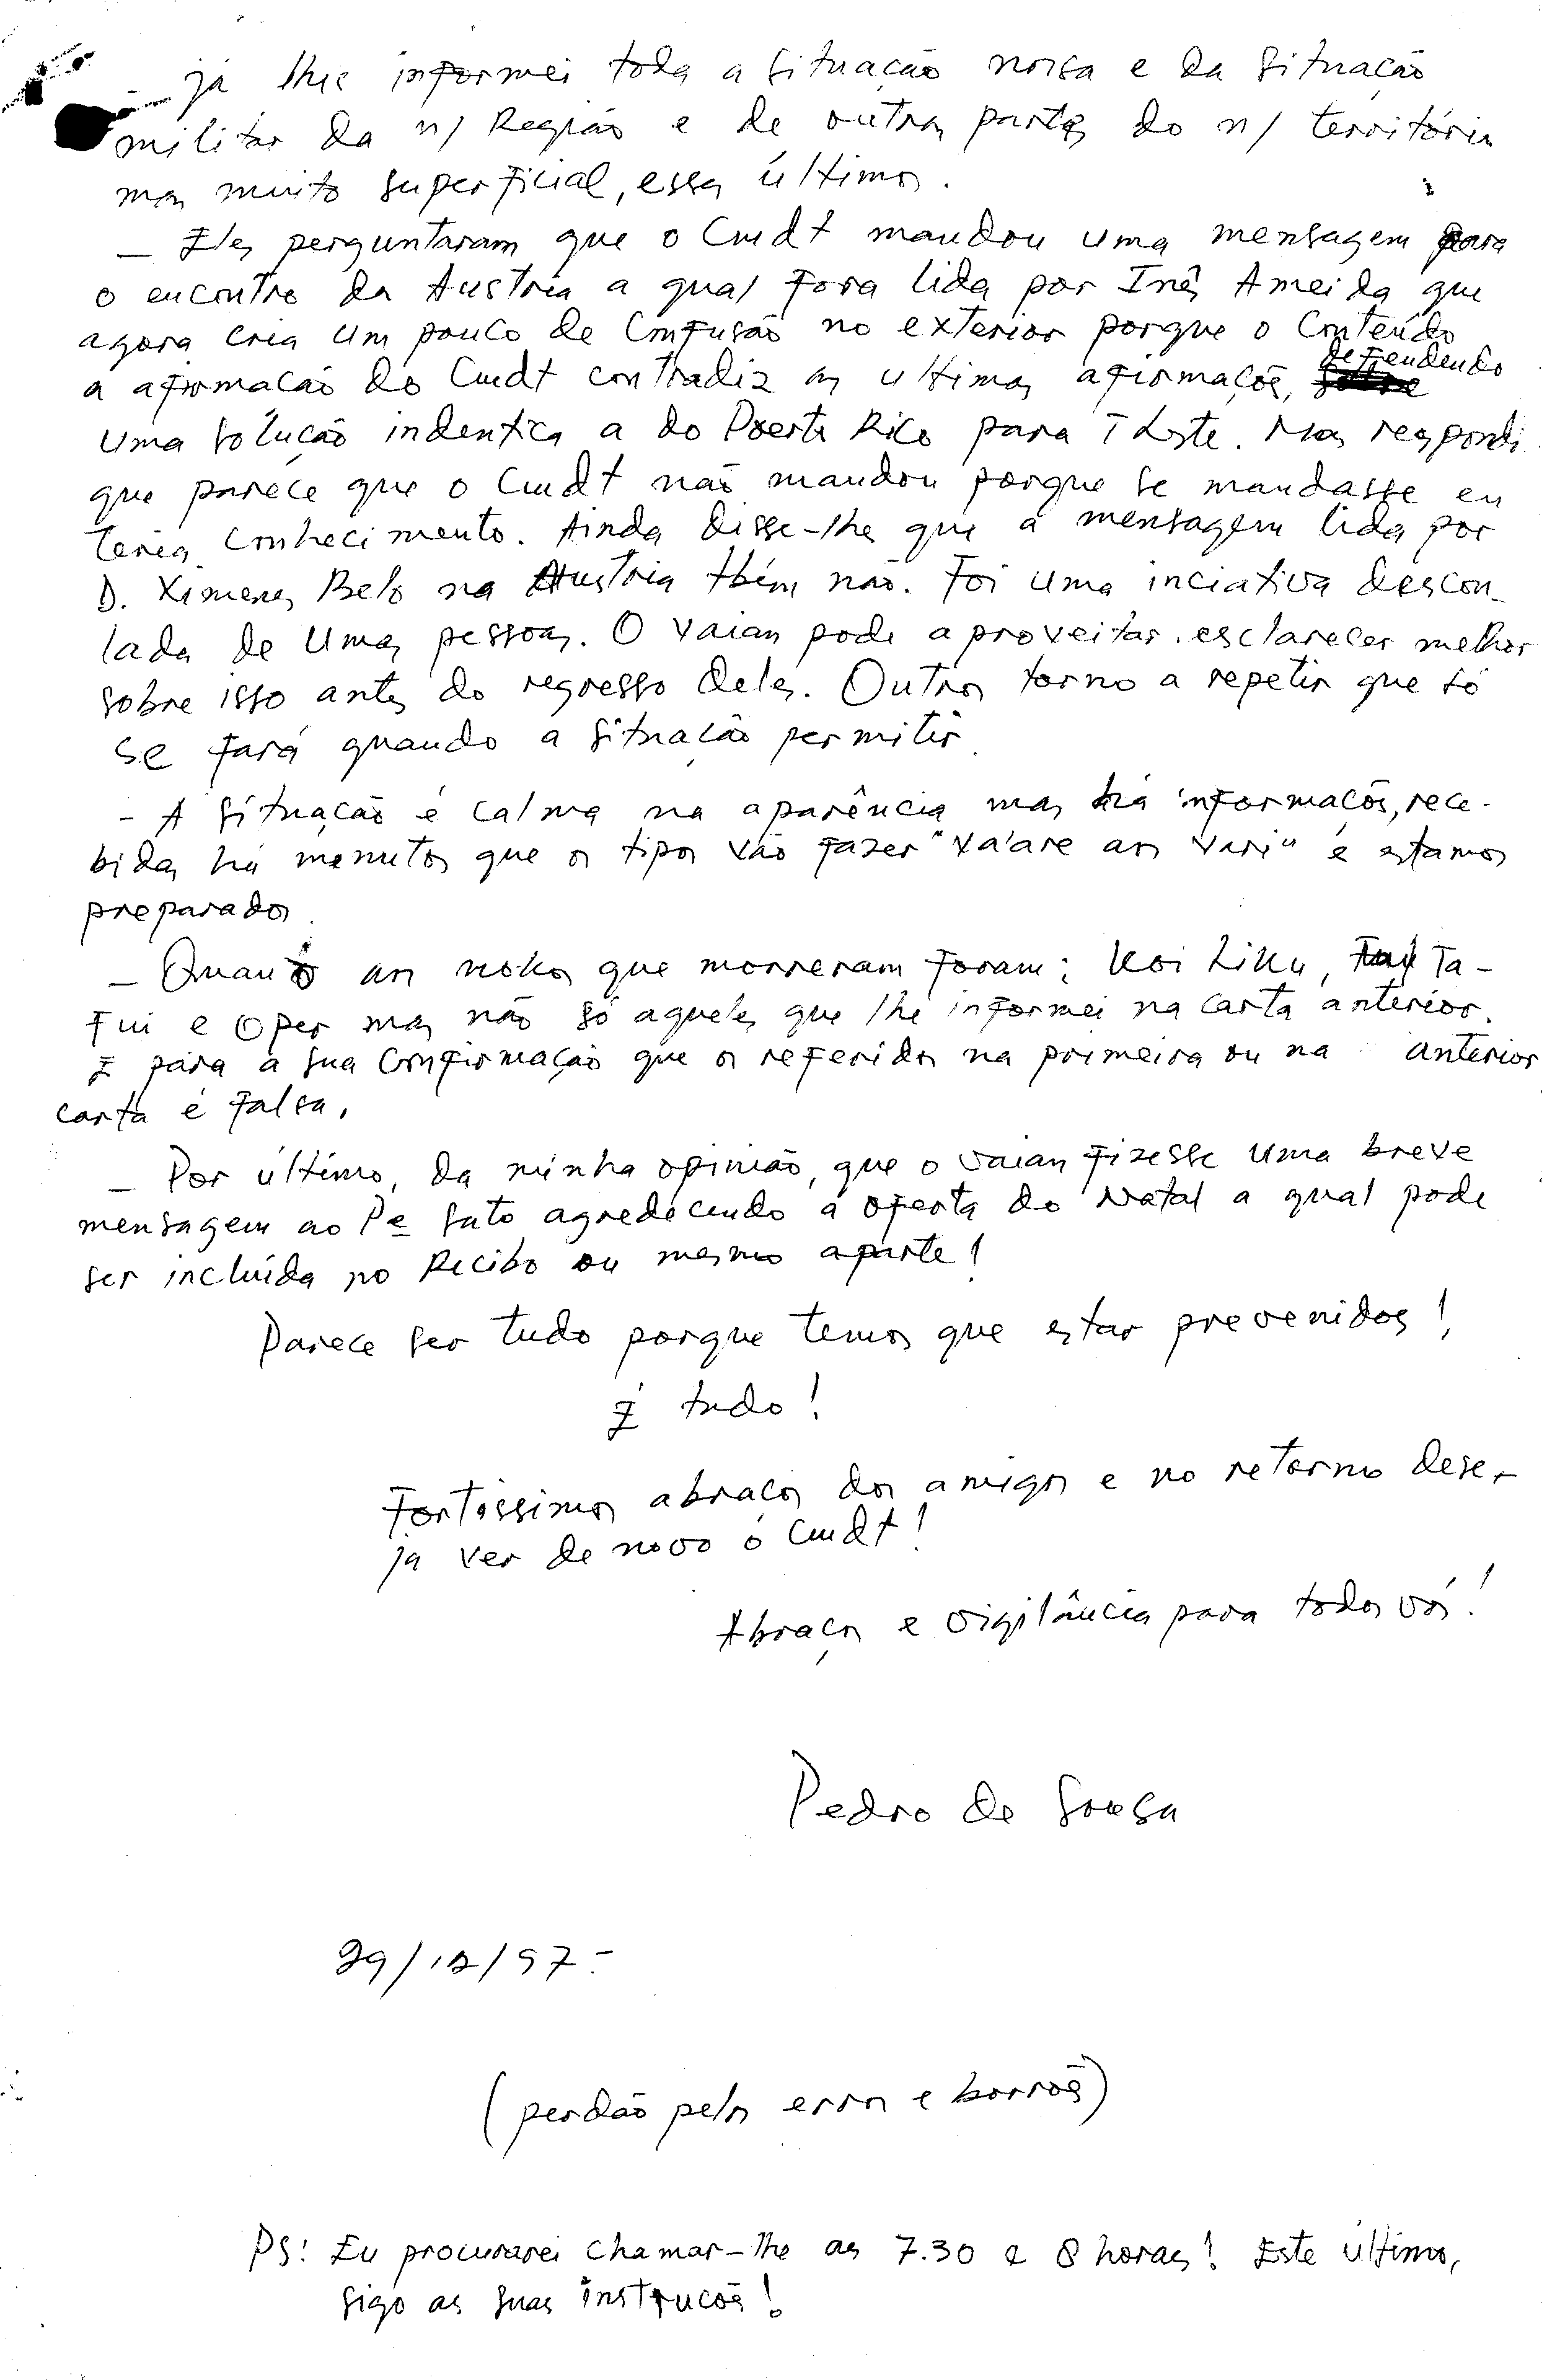 — já lhe informei toda a situação nossa e da situação
militar da n/ Região e de outras partes do n/ território
mas muito superficial, essa última.
— Eles perguntaram que o Cmdt mandou uma mensagem para
o encontro da Austria a qual fora lida por Inês Ameida que
agora cria um pouco de confusão no exterior porque o conteúdo
a afirmação do Cmdt contradiz as ultimas afirmações, defendendo
uma solução indentica a do Poerto Rico para T Leste. Mas respondi
que parece que o Cmdt não mandou porque se mandasse eu
teria conhecimento. Ainda disse-lhe que a mensagem lida por
D. Ximenes Belo na Austria tbém não. Foi uma inciativa descon-
lada de umas pessoas. O Vaian pode aproveitar esclarecer melhor
sobre isso antes do regresso deles. Outros torno a repetir que só
se fará quando a situação permitir.
- A situação é calma na aparência mas há informações, rece-
bidas há menutos que os tipos vão fazer "va'are an vari" e estamos
preparados.
— Quanto an nokos que morreram foram: Koi Liku, Ta-
fui e Oper mas não só aqueles que lhe informei na carta anterior.
E para a sua confirmação que os referidos na primeira ou na anterior
carta é falsa.
— Por último, da minha opinião, que o Vaian fizesse uma breve
mensagem ao Pe Sato agredecendo a oferta do Natal a qual pode
ser incluída no Recibo ou mesmo aparte!
Parece ser tudo porque temos que estar prevenidos!
É tudo!
Fortissimos abraços dos amigos e no retorno dese-
ja ver de novo o Cmdt!
Abraços e vigilância para todos vós!
Pedro de Sousa
29/12/97-
(perdão pelos erros e borrões)
PS: Eu procurarei chamar-lhe as 7.30 e 8 horas! Este último,
sigo as suas instruções!